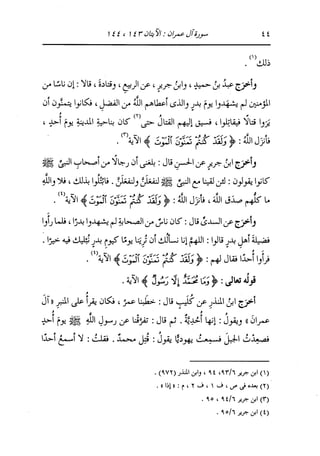 ٤٤ سورة آل عمران : الآيتان ١٤٣ ، ١٤٤
ذلك(١) .
وأخرج عبدُ بنُ حميدٍ ، وابنُ جريرٍ ، عن الربيعِ ، وقتادةَ ، قالا : إن ناسًا من
المؤمنين لم يشهدوا يومَ بدرٍ والذى أعطاهم اللَّهُ من الفضلِ ، فكانوا يتمنَّون أن
يَرَوا قتالًا فيقاتِلوا ، فسيق إليهم القتالُ حتى(٢) كان بناحيةِ المدينةِ يومَ أُحدٍ ،
فأنزل اللَّهُ : ﴿ وَلَقَدْ كُنتُمْ تَمَنَّوْنَ ٱلْمَوْتَ ﴾ الآية(٣) .
وأخرج ابنُ جريرٍ عن الحسنِ قال : بلغنى أن رجالًا من أصحابِ النبىِّ ﷺ
كانوا يقولون : لئن لقينا مع النبىِّ ﷺ لنفعَلَنَّ ولنفعَلَنَّ . فابتُلُوا بذلك ، فلا واللَّهِ
ما كلُّهم صدَق اللَّهَ ، فأنزل اللَّهُ : ﴿ وَلَقَدْ كُنتُمْ تَمَنَّوْنَ ٱلْمَوْتَ ﴾ الآية(٤) .
وأخرَج عن السدىِّ قال : كان ناسٌ من الصحابةِ لم يشهدوا بدرًا ، فلما رأَوا
فضيلةَ أهلِ بدرٍ قالوا : اللهمَّ إنا نسألُك أن تُرِيَنا يومًا كيومِ بدرٍ نُبليك فيه خيرًا .
فرأَوا أُحدًا فقال لهم : ﴿ وَلَقَدْ كُنتُمْ تَمَنَّوْنَ ٱلْمَوْتَ ﴾ الآية(٤) .
قولُه تعالى : ﴿ وَمَا مُحَمَّدٌ إِلَّا رَسُولٌ ﴾ الآية .
أخرَج ابنُ المنذرِ عن كُلَيبٍ قال : خطَبنا عمرُ ، فكان يقرأُ على المنبرِ « آلَ
عمرانَ » ويقولُ : إنها أُحُدِيَّةٌ . ثم قال : تفرَّقنا عن رسولِ اللَّهِ ﷺ يومَ أُحدٍ
فصعِدتُ الجبلَ فسمِعتُ يهوديًّا يقولُ : قُتِل محمدٌ . فقلتُ : لا أسمعُ أحدًا
(١) ابن جرير ٩٣/٦ ، ٩٤ ، وابن المنذر (٩٧٢) .
(٢) بعده فى ص ، ف ١ ، ف ٢ ، م : « إذا » .
(٣) ابن جرير ٩٤/٦ ، ٩٥ .
(٤) ابن جرير ٩٥/٦ .